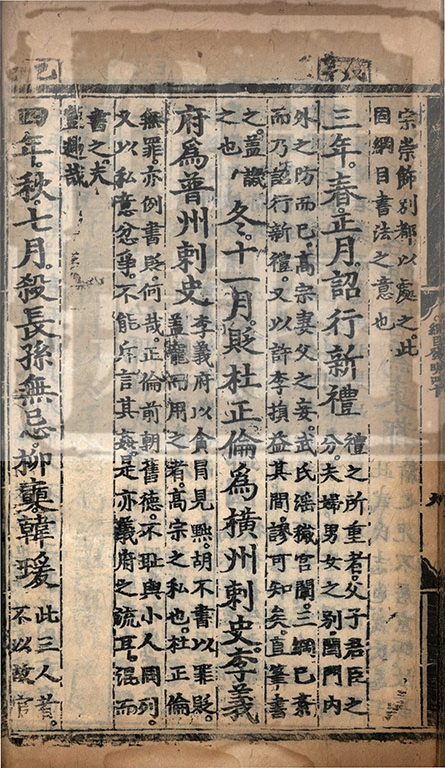 宗崇飾別都以處之。此
固綱目書法之意也
三年。春。正月。詔行新禮
禮之所重者。父子君臣之
分。夫婦男女之別。閨門內
外之防而已。高宗妻父之妾。武氏瑤穢宮闈。三綱已紊
而乃詔行新禮。又以許李損益其間。謬可知矣。直筆書
之。蓋譏
之也
冬。十一月。貶杜正倫爲橫州刺史。李義
府爲普州刺史
李義府以貪冒見黜。胡不書以罪貶。
蓋寵而用之者。高宗之私也。杜正倫
無罪。亦例書貶何哉。正倫前朝舊德。不耻與小人同列。
又以私忿爭。不能斥言其姦。是亦義府之流耳。混而
書之。夫
豈過哉
四年。秋。七月。殺長孫無忌。柳奭韓瑗
此三人者。
不以故官